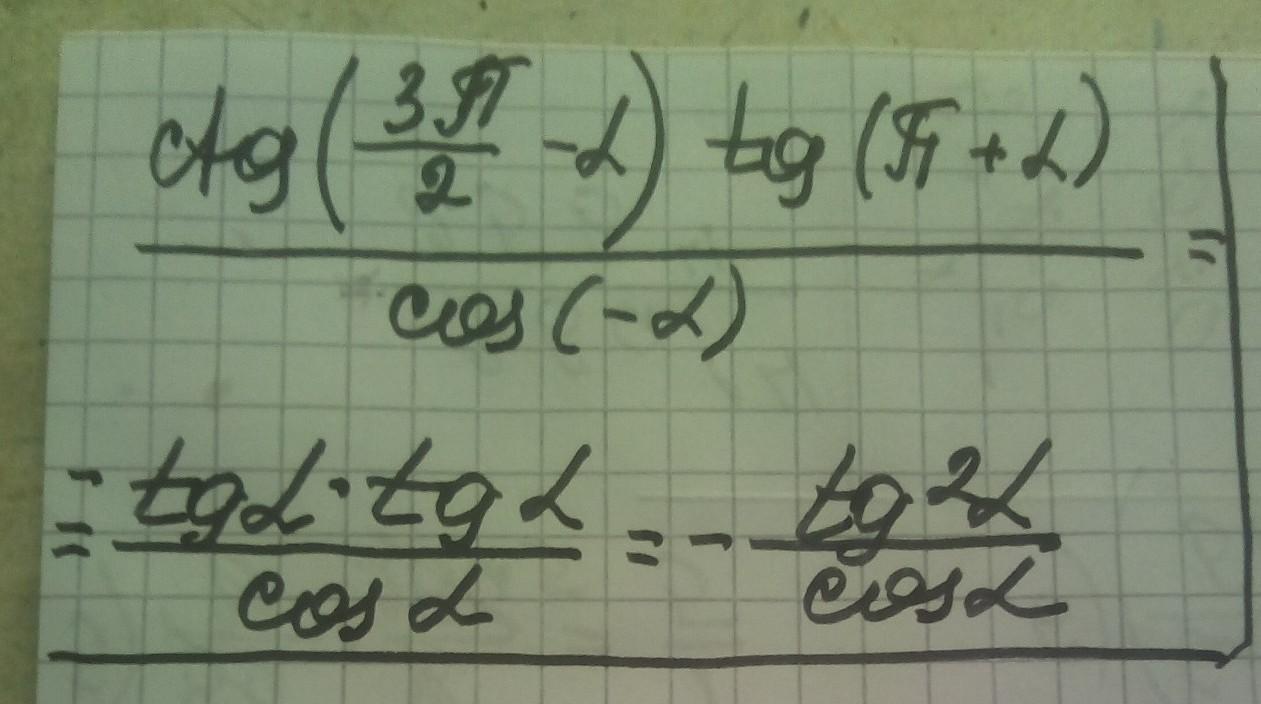 ctg(3π/2 - α) tg(π + α)
cos(-α) =
= tgα · tgα / cosα = - tg²α / cosα